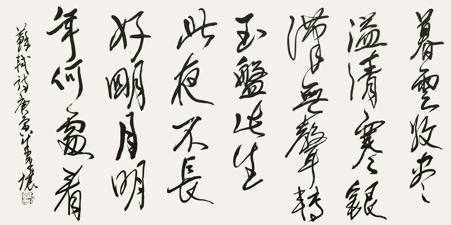 暮雲收盡
溢清寒銀
漢無聲轉
玉盤此生
此夜不長
好明月明
年何處看
蘇軾詩庚寅